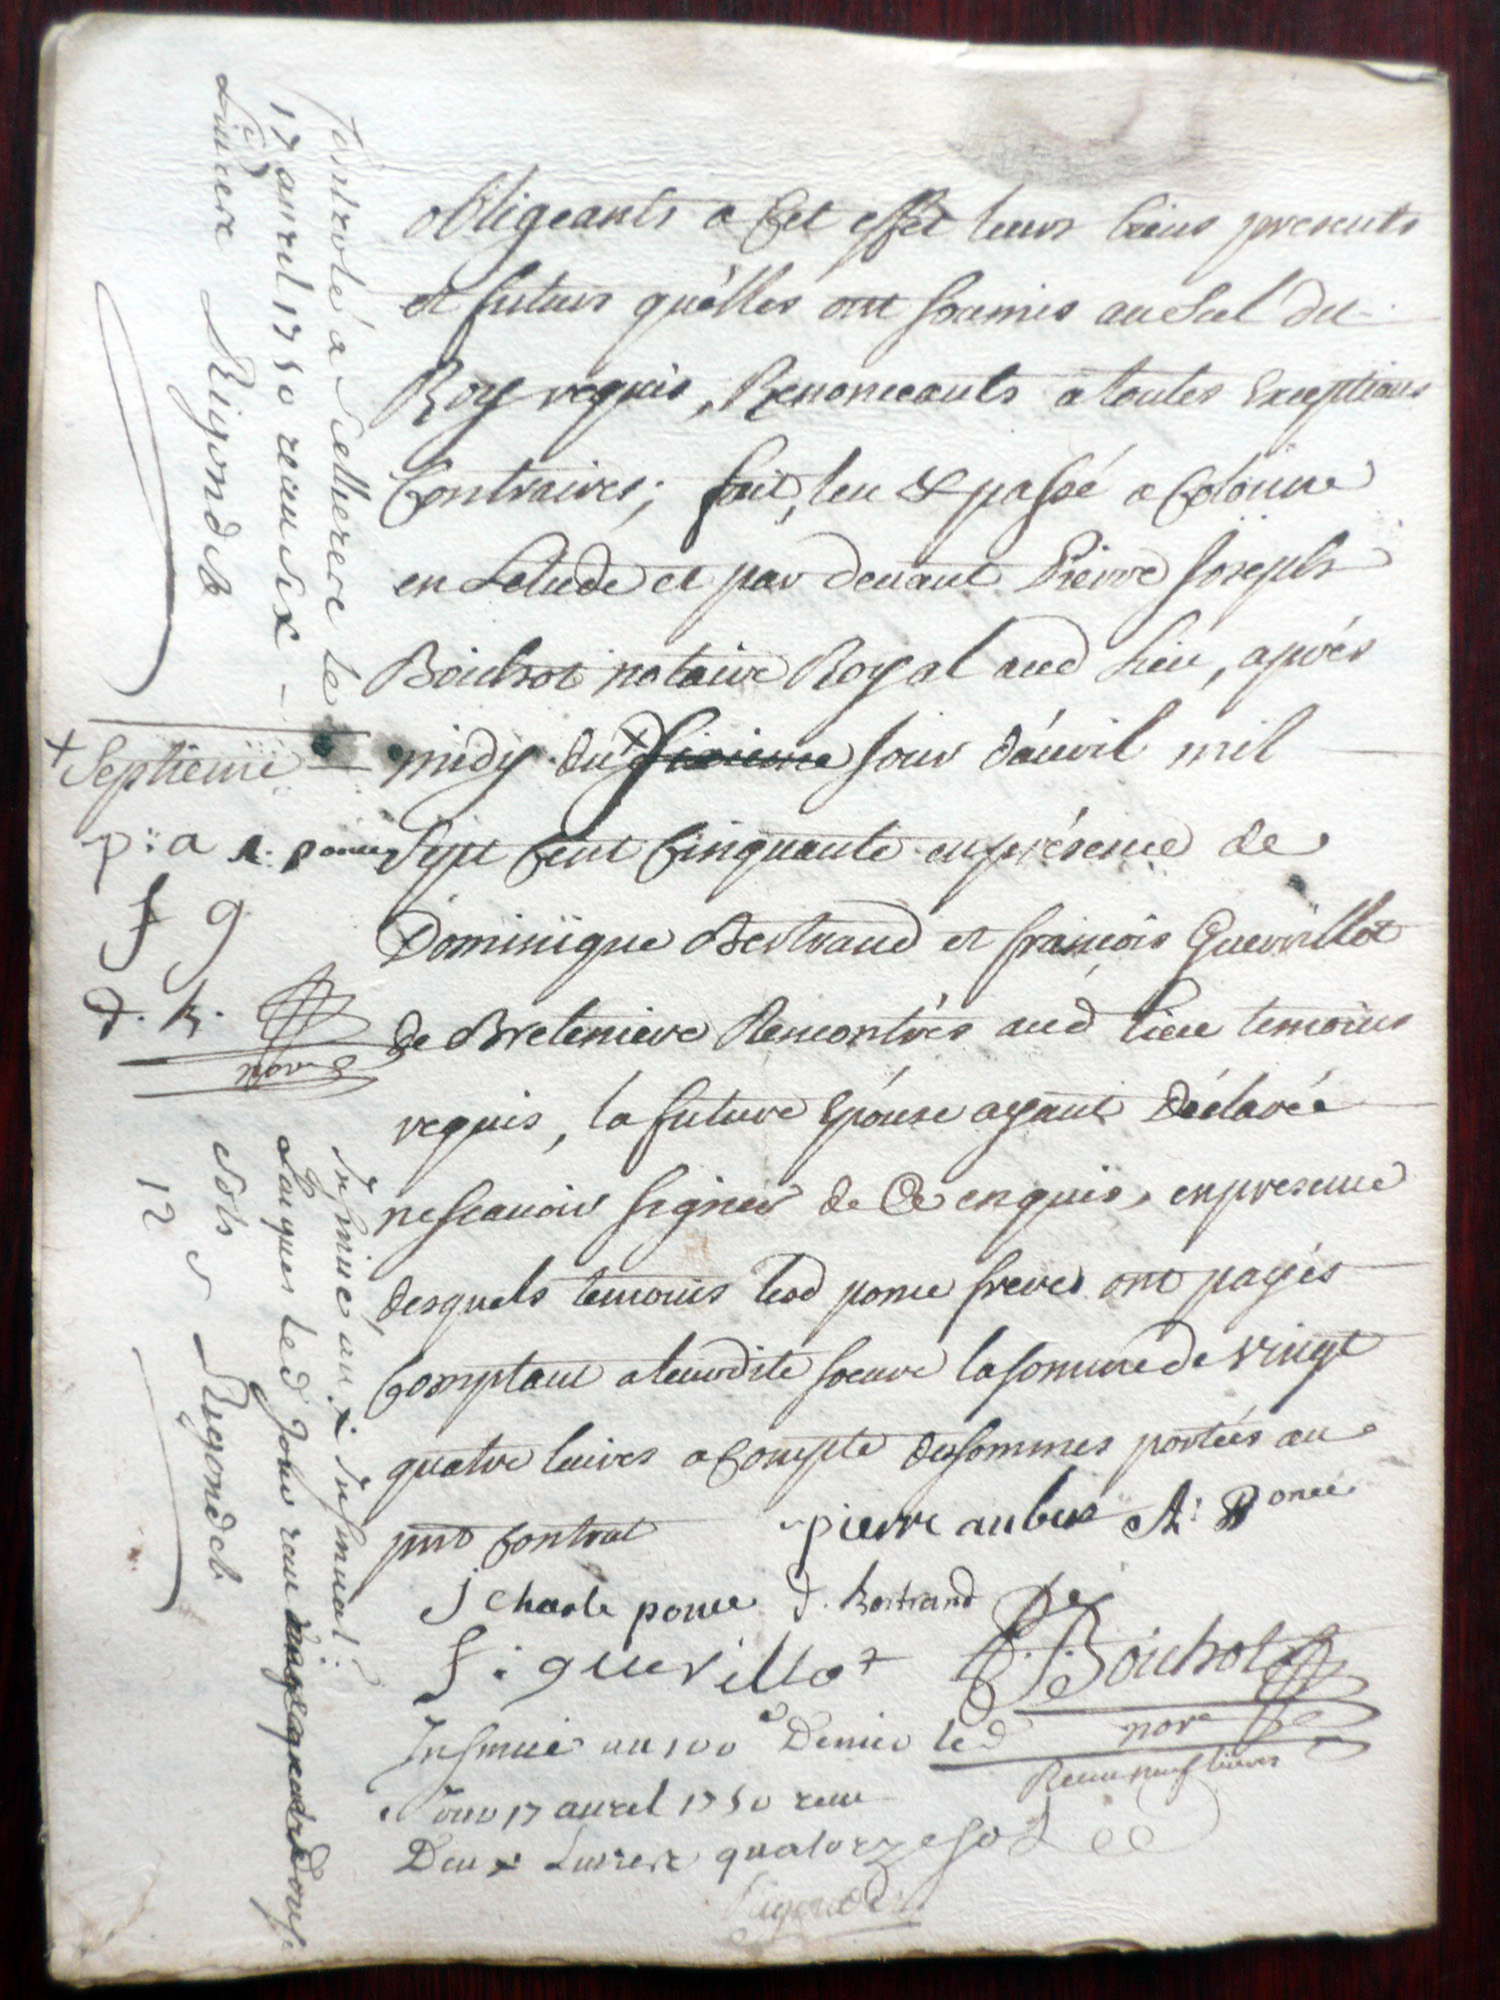 obligeants a Cet effet leurs biens presents
et futurs qu'elles ont soumis au Scel du
Roy requis, Renonceants a toutes Exceptions
Contraires; fait, leu & passé a Colonne
en Letude et par devant Pierre Joseph
Boichot notaire Royal aud lieu, aprés
midy du + sixieme jour d'avril mil
Sept Cent Cinquante en présence de
Dominique Bertrand et françois Guervillot
de Breteniere Rencontrés aud lieu temoins
requis, la future Epouse ayant déclarée
ne scavoir signer de Ce enquis, en presence
desquels temoins lesd ponce freres ont payés
Comptant a leurdite soeure la somme de vingt
quatre livres a Compte des sommes portées au
pnt Contrat
pierre aubert A: Ponce
J Charle ponce d. bertrand
f. guervillot J. Boichot
nore
Receu neuf livres
Insinué au 100e Denier led
Jour 17 avril 1750 receu
Deux Livres quatorze sols
Rigondet
+ Septieme
p: a A. ponce
f g
d. b.
nore
Controlé a Sellierere le
17 avril 1750 receu six
Livere Rigondet
Insinué au Insinuat:
Laiques led Jour receu Douse
sols Rigondet
12